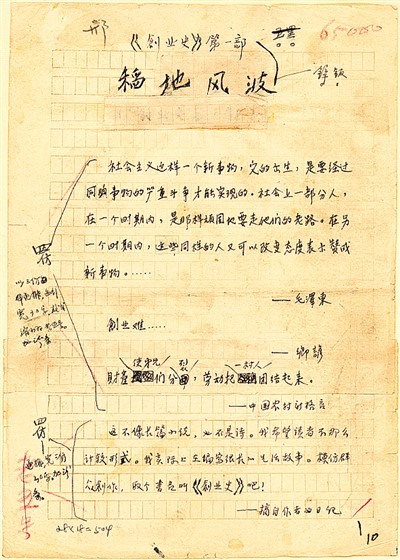 《创业史》第一部
650250
稻地风波
锌版
社会主义这样一个新事物，它的出生，是要经过
同旧事物的严重斗争才能实现的。社会上一部分人，
在一个时期内，是那样顽固地要走他们的老路。在另
一个时期内，这些同样的人又可以改变态度表示赞成
新事物。……
——毛泽东
创业难……
——乡谚
使弟兄 裂 一村人
财产们分，劳动把团结起来。
——中国农村的格言
四仿
四仿
这不像长篇小说，也不是诗。我希望读者不那么
计较形式。我实际上在编写很长的生活故事。模仿群
众创作，取个书名叫《创业史》吧！
——摘自作者的日记
28×18=504
1
10